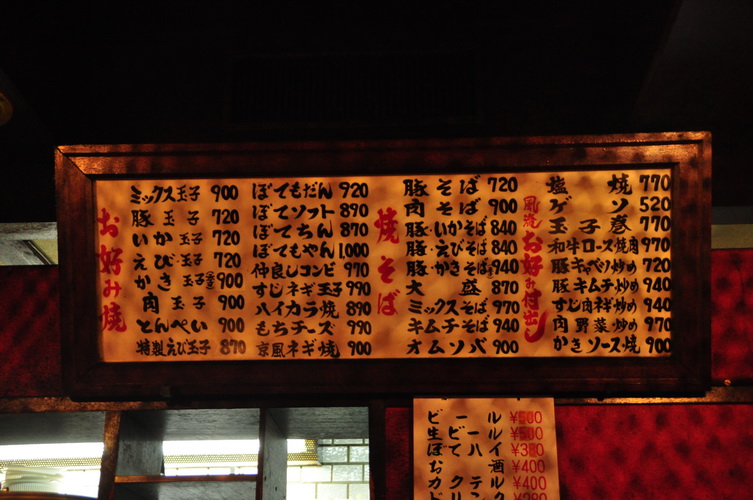 お好み焼
ミックス玉子 900
豚玉子 720
いか玉子 720
えび玉子 720
かき玉子 900
肉玉子 900
とんぺい 900
特製えび玉子 870
ぼてもだん 920
ぼてソフト 890
ぼてちん 870
ぼてもやん 1,000
仲良しコンビ 970
すじネギ玉子 990
ハイカラ焼 890
もちチーズ 990
京風ネギ焼 900
焼そば
豚そば 720
肉そば 900
豚・いかそば 840
豚・えびそば 840
豚・かきそば 940
大盛 870
ミックスそば 970
キムチそば 940
オムソバ 900
風流お好み付出し
塩焼 770
ゲソ 520
玉子巻 770
和牛ロース焼肉 970
豚キャベツ炒め 720
豚キムチ炒め 940
すじ肉ネギ炒め 940
肉野菜炒め 970
かきソース焼 900
ビール ¥500
生ビール ¥500